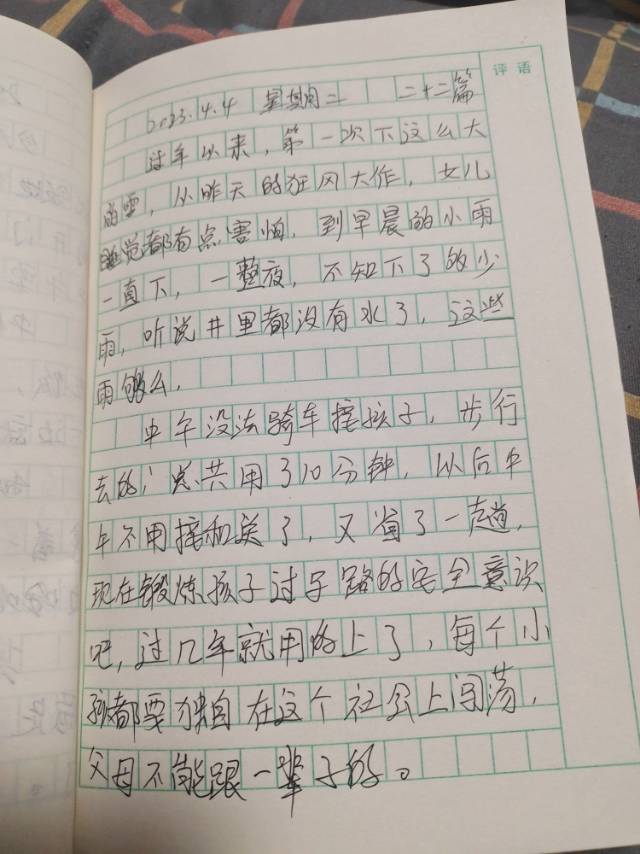 评语
2023.4.4 星期二 二十二篇
过年以来，第一次下这么大
雨雪，从昨天的狂风大作，女儿
睡觉都有点害怕，到早晨的小雨
一直下，一整夜，不知下了多少
雨，听说井里都没有水了，这些
雨够么，
中午没法骑车接孩子，步行
去的，总共用了10分钟，以后中
午不用接和送了，又省了一趟，
现在锻炼孩子过马路的安全意识
吧，过几年就用的上了，每个小
孩都要独自在这个社会上闯荡，
父母不能跟一辈子的。